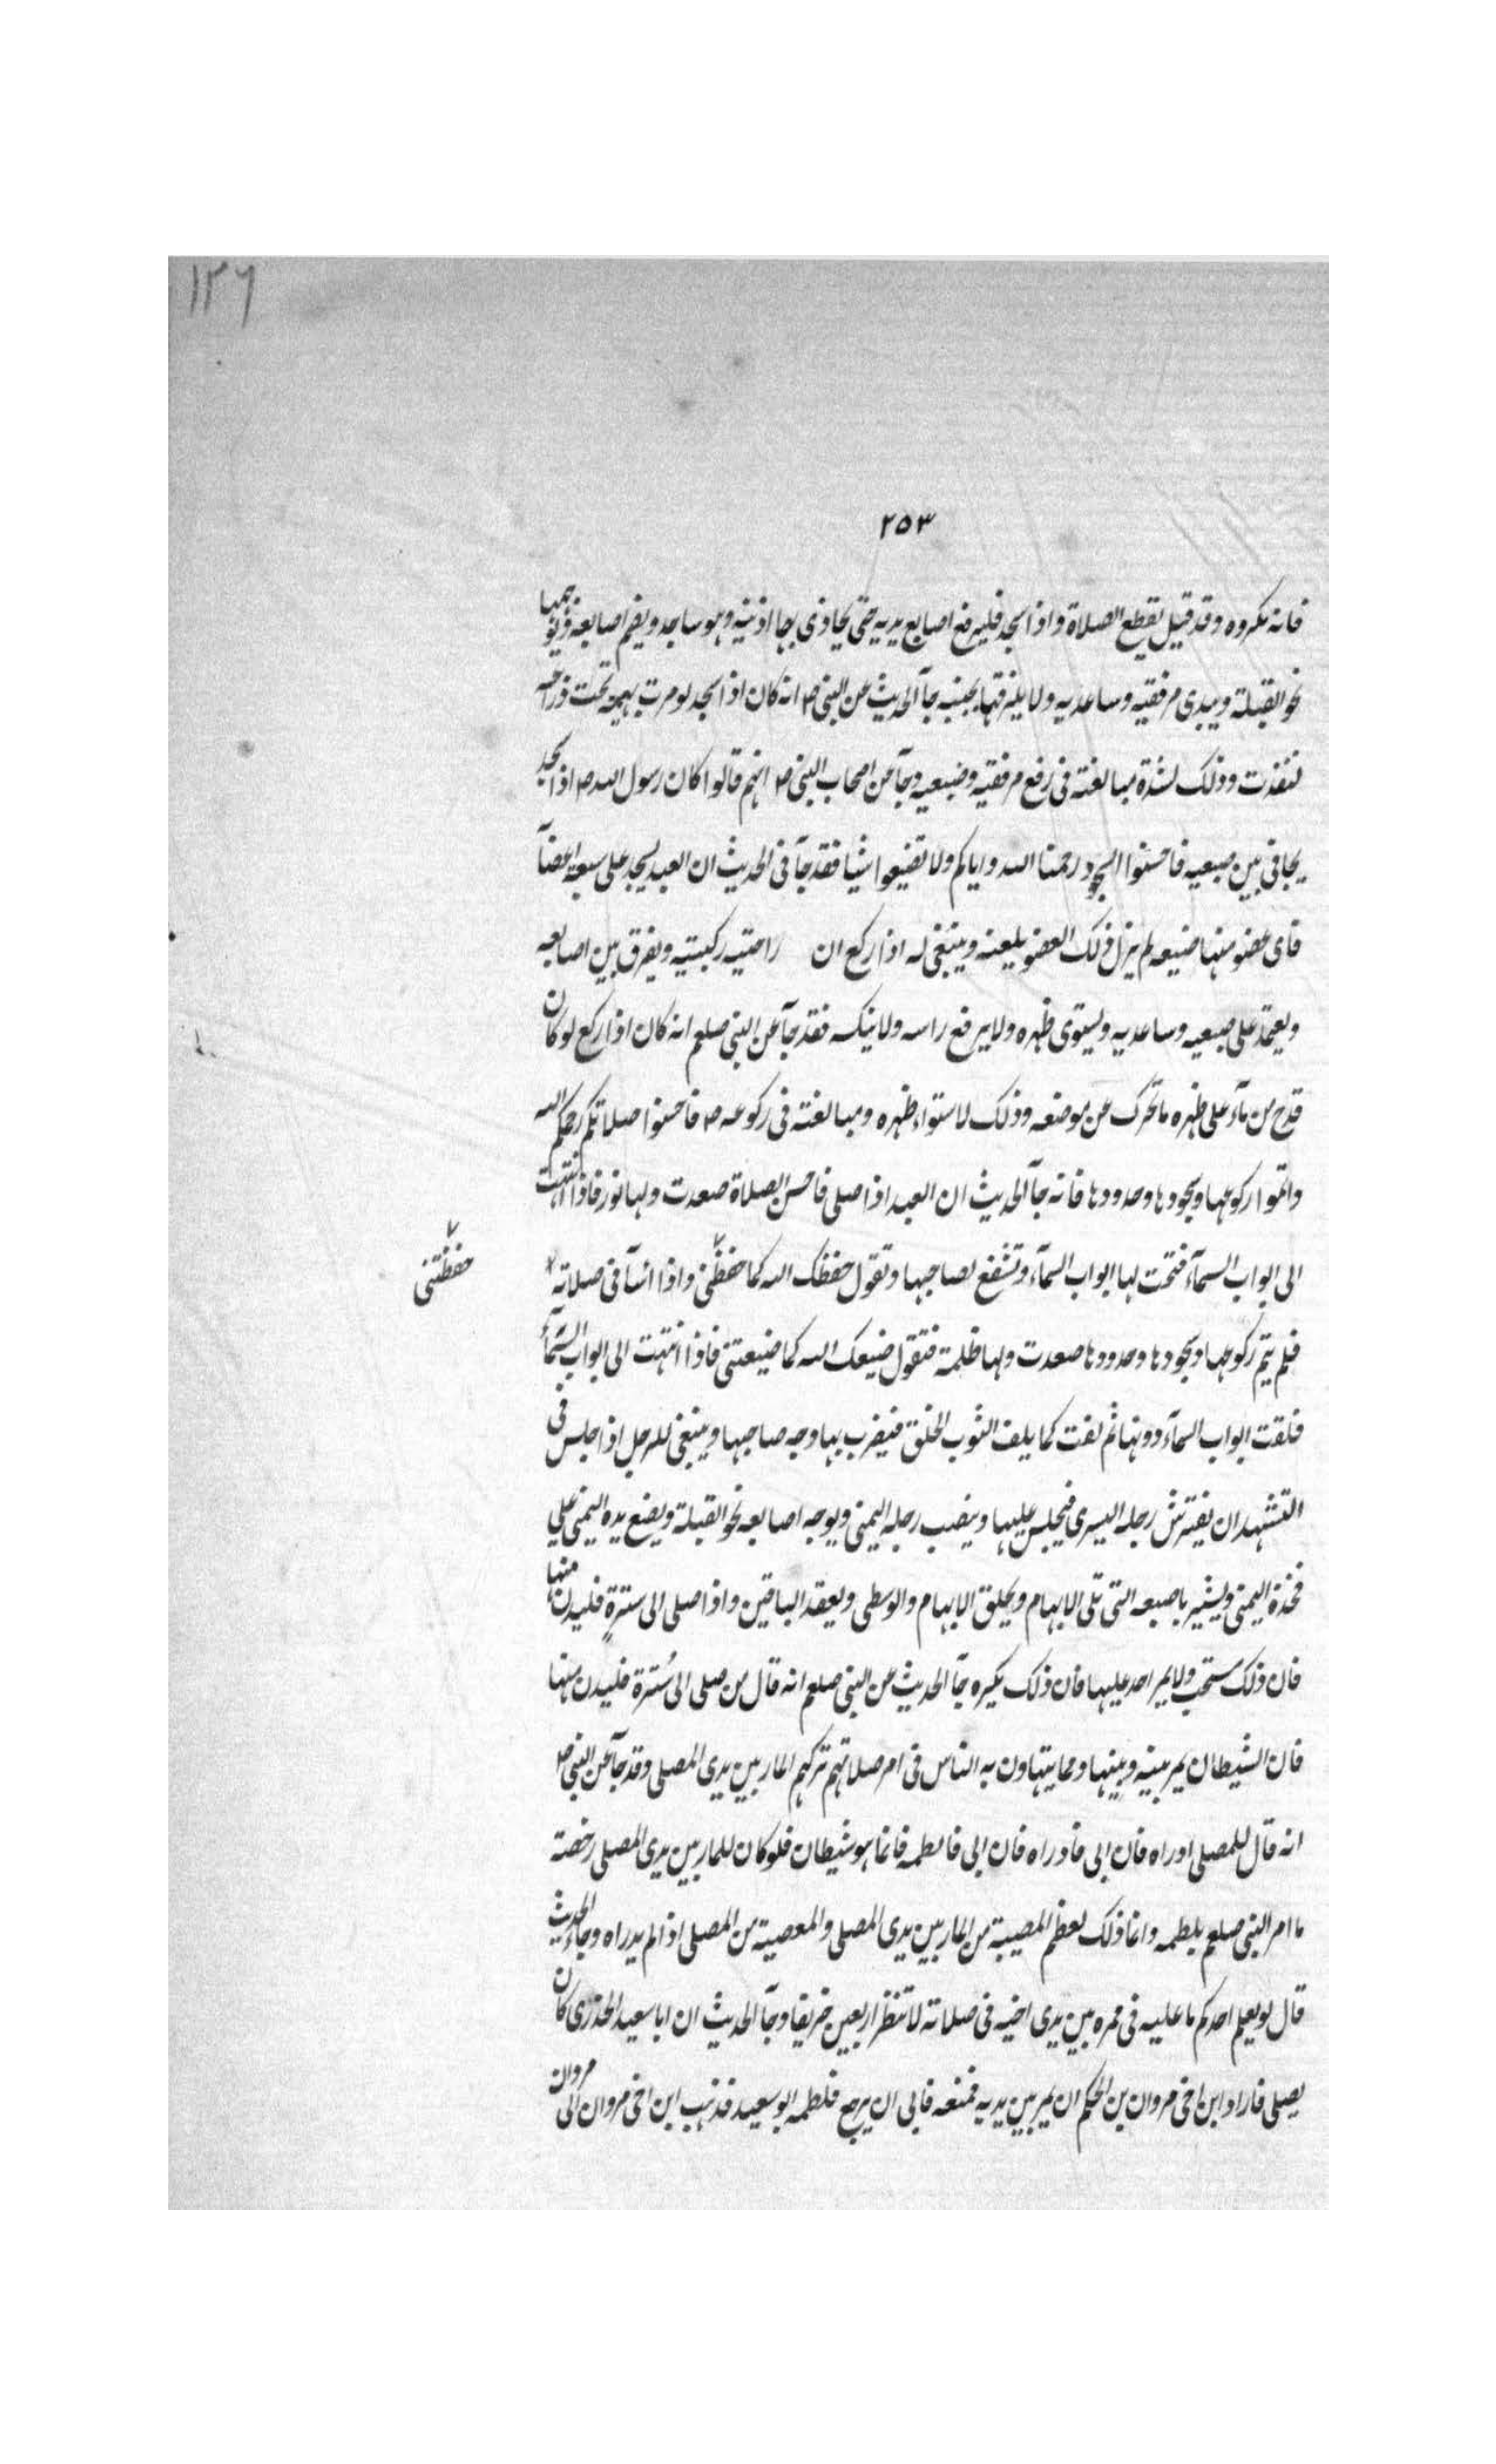 ١٢٦
٢٥٣
فانه مكروه وقد قيل يقطع الصلاة واذا سجد فليرفع اصابع يديه حتى يحاذى بها اذنيه وهو ساجد ويضم اصابعه ويوجهها
نحو القبلة ويبدى مرفقيه وساعديه ولا يلزقها بجنبه جآ الحديث عن النبى ص انه كان اذا سجد لو مرت بهيمة تحت ذراعيه
لنفذت وذلك لشدة مبالغته فى رفع مرفقيه وضبعيه وجآ عن اصحاب النبى ص انهم قالوا كان رسول الله ص اذا سجد
يجافى بين ضبعيه فاحسنوا السجود رحمنا الله واياكم ولا تضيعوا شيا فقد جآ فى الحديث ان العبد يسجد على سبعة اعضآ
فاى عضو منها ضيعه لم يزل ذلك العضو يلعنه وينبغى له اذا ركع ان راحتيه ركبتيه ويفرق بين اصابعه
ويعتمد على ضبعيه وساعديه ويستوى ظهره ولا يرفع راسه ولا ينكسه فقد جآ عن النبى صلعم انه كان اذا ركع لو كان
قدح من مآء على ظهره ما تحرك عن موضعه وذلك لاستواء ظهره ومبالغته فى ركوعه ص فاحسنوا صلاتكم رحمكم الله
واتموا ركوعها وسجودها وحدودها فانه جآ الحديث ان العبد اذا صلى فاحسن الصلاة صعدت ولها نور فاذا انتهت
الى ابواب السمآء فتحت لها ابواب السمآء وتشفع لصاحبها وتقول حفظك الله كما حفظنى واذا اسآ فى صلاته
حفظتنى
فلم يتم ركوعها وسجودها وحدودها صعدت ولها ظلمة فتقول ضيعك الله كما ضيعتنى فاذا انتهت الى ابواب السمآء
فلقت ابواب السمآء دونها ثم لفت كما يلف الثوب الخلق فيضرب بها وجه صاحبها وينبغى للرجل اذا جلس فى
التشهد ان يفترش رجله اليسرى فيجلس عليها وينصب رجله اليمنى ويوجه اصابعه نحو القبلة ويضع يده اليمنى على
فخذه اليمنى ويشير باصبعه التى تلى الابهام ويحلق الابهام والوسطى ويعقد الباقين واذا صلى الى سترة فليدن منها
فان ذلك مستحب ولا يمر احد عليها فان ذلك يكره جآ الحديث عن النبى صلعم انه قال من صلى الى سُترة فليدن منها
فان الشيطان يمر بينه وبينها ومما يتهاون به الناس فى امر صلاتهم تركهم المار بين يدى المصلى وقد جآ عن النبى ص
انه قال للمصلى ادراه فان ابى فادراه فان ابى فالطمه فانما هو شيطان فلو كان للمار بين يدى المصلى رخصة
ما امر النبى صلعم بلطمه وانما ذلك لعظم المصيبة من المار بين يدى المصلى والمعصية من المصلى اذا لم يدراه وجاء الحديث
قال لو يعلم احدكم ما عليه فى ممره بين يدى اخيه فى صلاته لانتظر اربعين خريفا وجآ الحديث ان ابا سعيد الخدرى كان
يصلى فاراد ابن اخى مروان بن الحكم ان يمر بين يديه فمنعه فابى ان يرجع فلطمه ابو سعيد فذهب ابن اخى مروان الى مروان